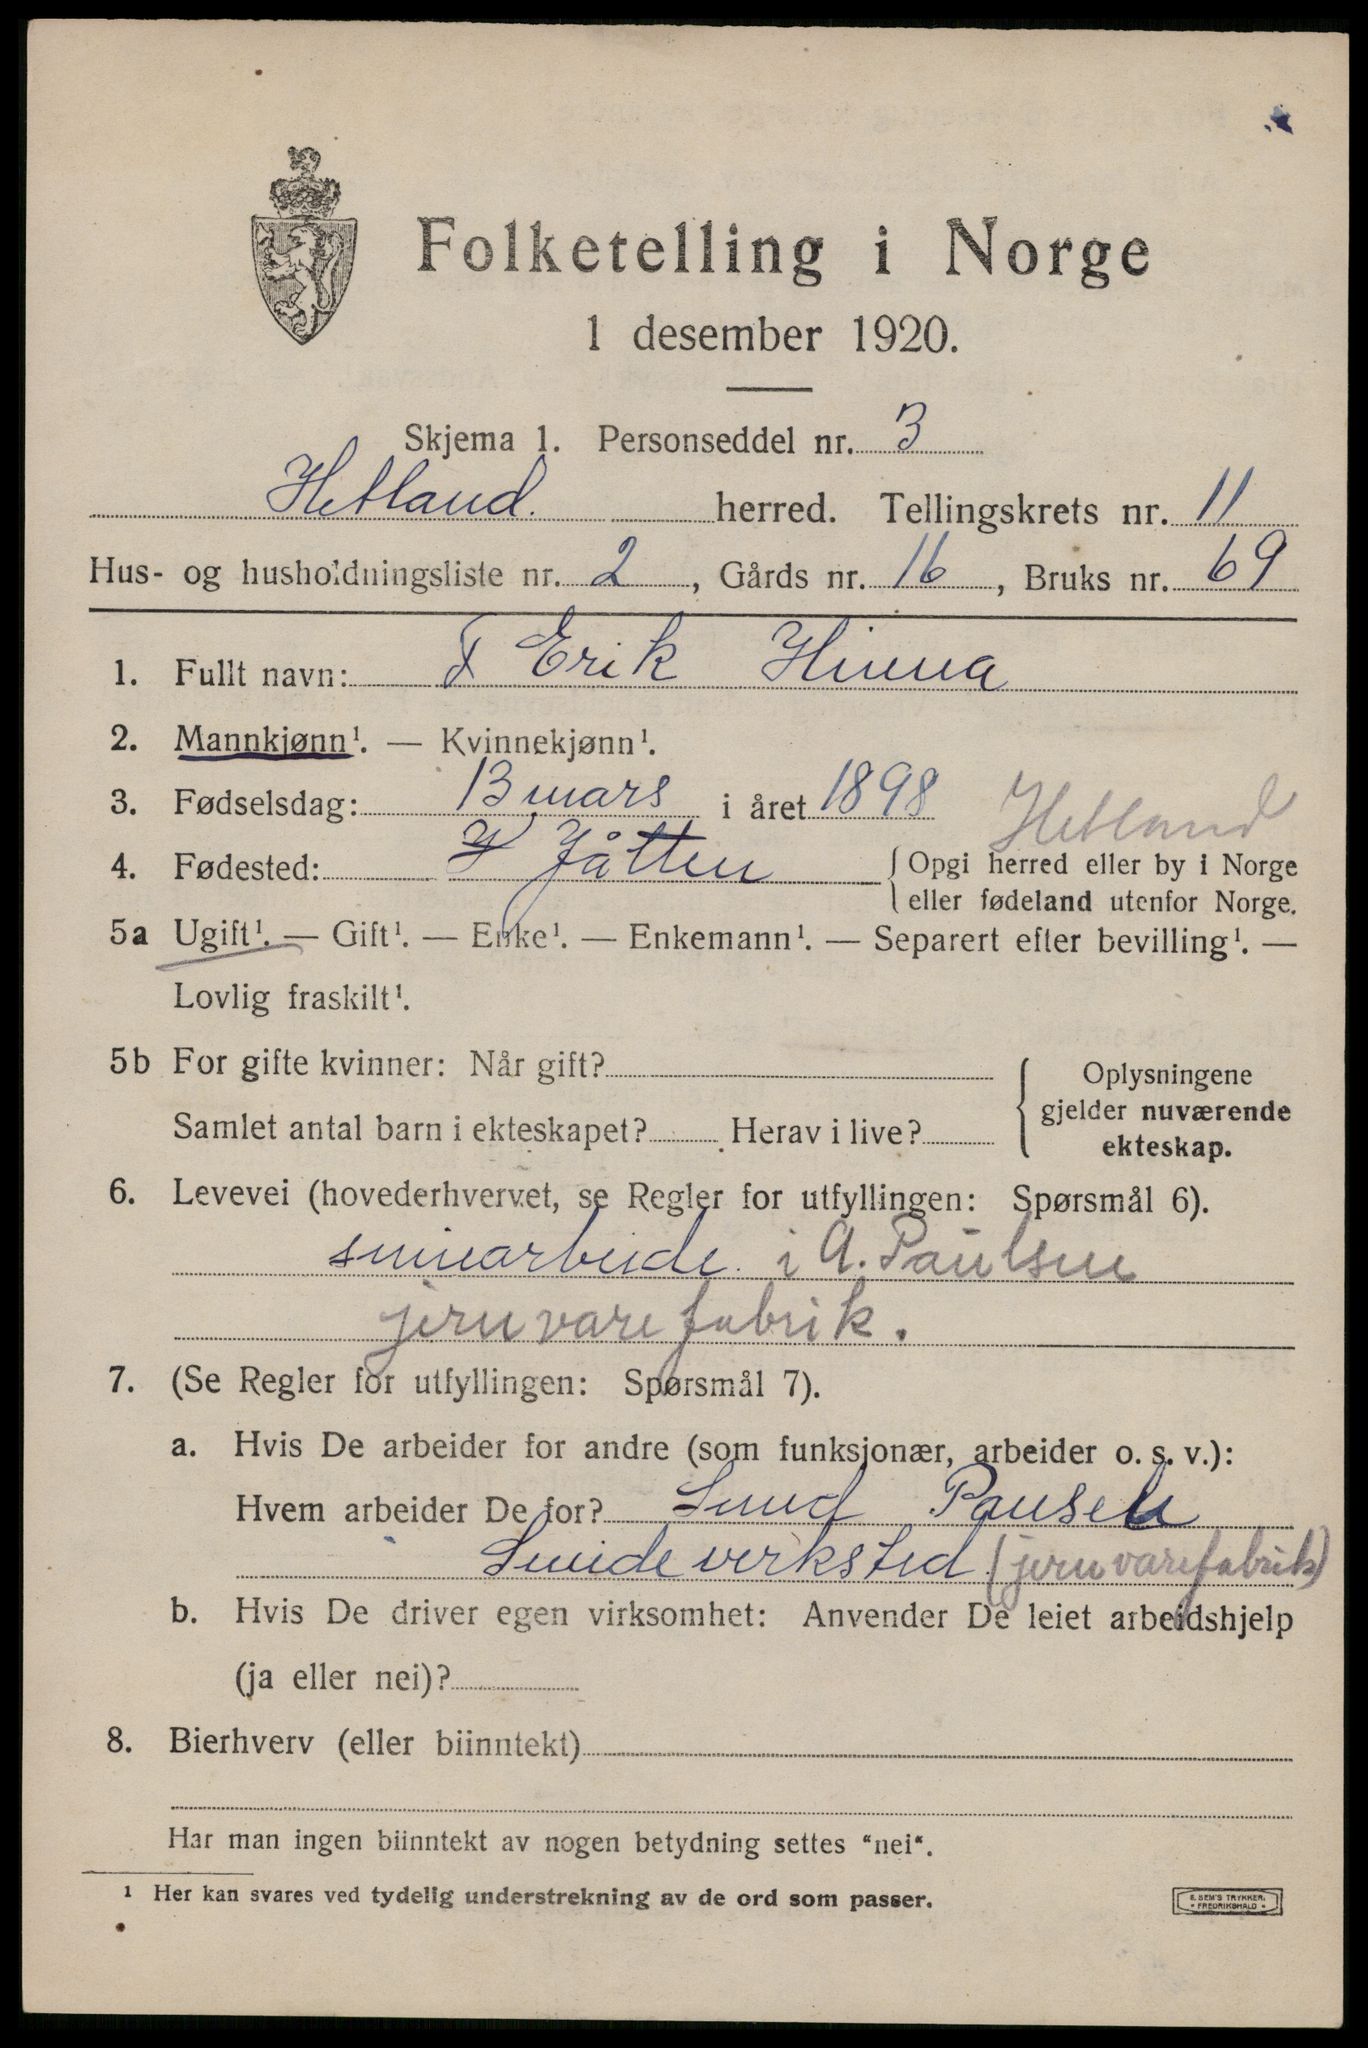 Folketelling i Norge
1 desember 1920.
Skjema 1. Personseddel nr. 3
Hetland. herred. Tellingskrets nr. 11
Hus- og husholdningsliste nr. 2, Gårds nr. 16, Bruks nr. 69
1. Fullt navn: Erik Hinna
2. Mannkjønn¹. — Kvinnekjønn¹.
3. Fødselsdag: 13 mars i året 1898
Hetland
4. Fødested: Jåtten { Opgi herred eller by i Norge
eller fødeland utenfor Norge.
5a Ugift¹. — Gift¹. — Enke¹. — Enkemann¹. — Separert efter bevilling¹. —
Lovlig fraskilt¹.
5b For gifte kvinner: Når gift?
Samlet antal barn i ekteskapet? Herav i live?
Oplysningene
gjelder nuværende
ekteskap.
6. Levevei (hovederhvervet, se Regler for utfyllingen: Spørsmål 6).
smiearbeide i A. Paulsen
jernvarefabrik.
7. (Se Regler for utfyllingen: Spørsmål 7).
a. Hvis De arbeider for andre (som funksjonær, arbeider o. s. v.):
Hvem arbeider De for? Smed Pausen
Smideverksted (jernvarefabrik)
b. Hvis De driver egen virksomhet: Anvender De leiet arbeidshjelp
(ja eller nei)?
8. Bierhverv (eller biinntekt)
Har man ingen biinntekt av nogen betydning settes "nei".
¹ Her kan svares ved tydelig understrekning av de ord som passer.
E. SEM'S TRYKKER.
FREDRIKSHALD